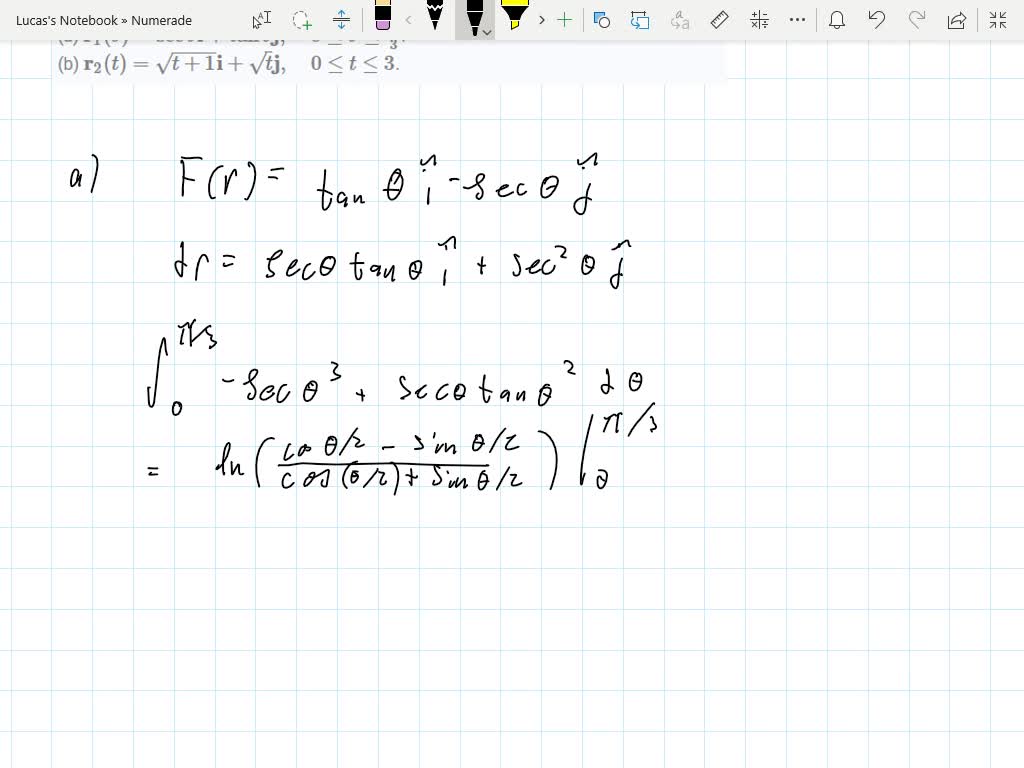 Lucas's Notebook » Numerade
(b) r₂(t) = √t + 1i + √tj, 0 ≤ t ≤ 3.
a) F(r) = tan θ î - sec θ ĵ
dr = sec θ tan θ î + sec² θ ĵ
∫₀^π/3 - sec θ³ + sec θ tan θ² dθ
= ln( (cos θ/2 - sin θ/2) / (cos (θ/2) + sin θ/2) ) |₀^π/3